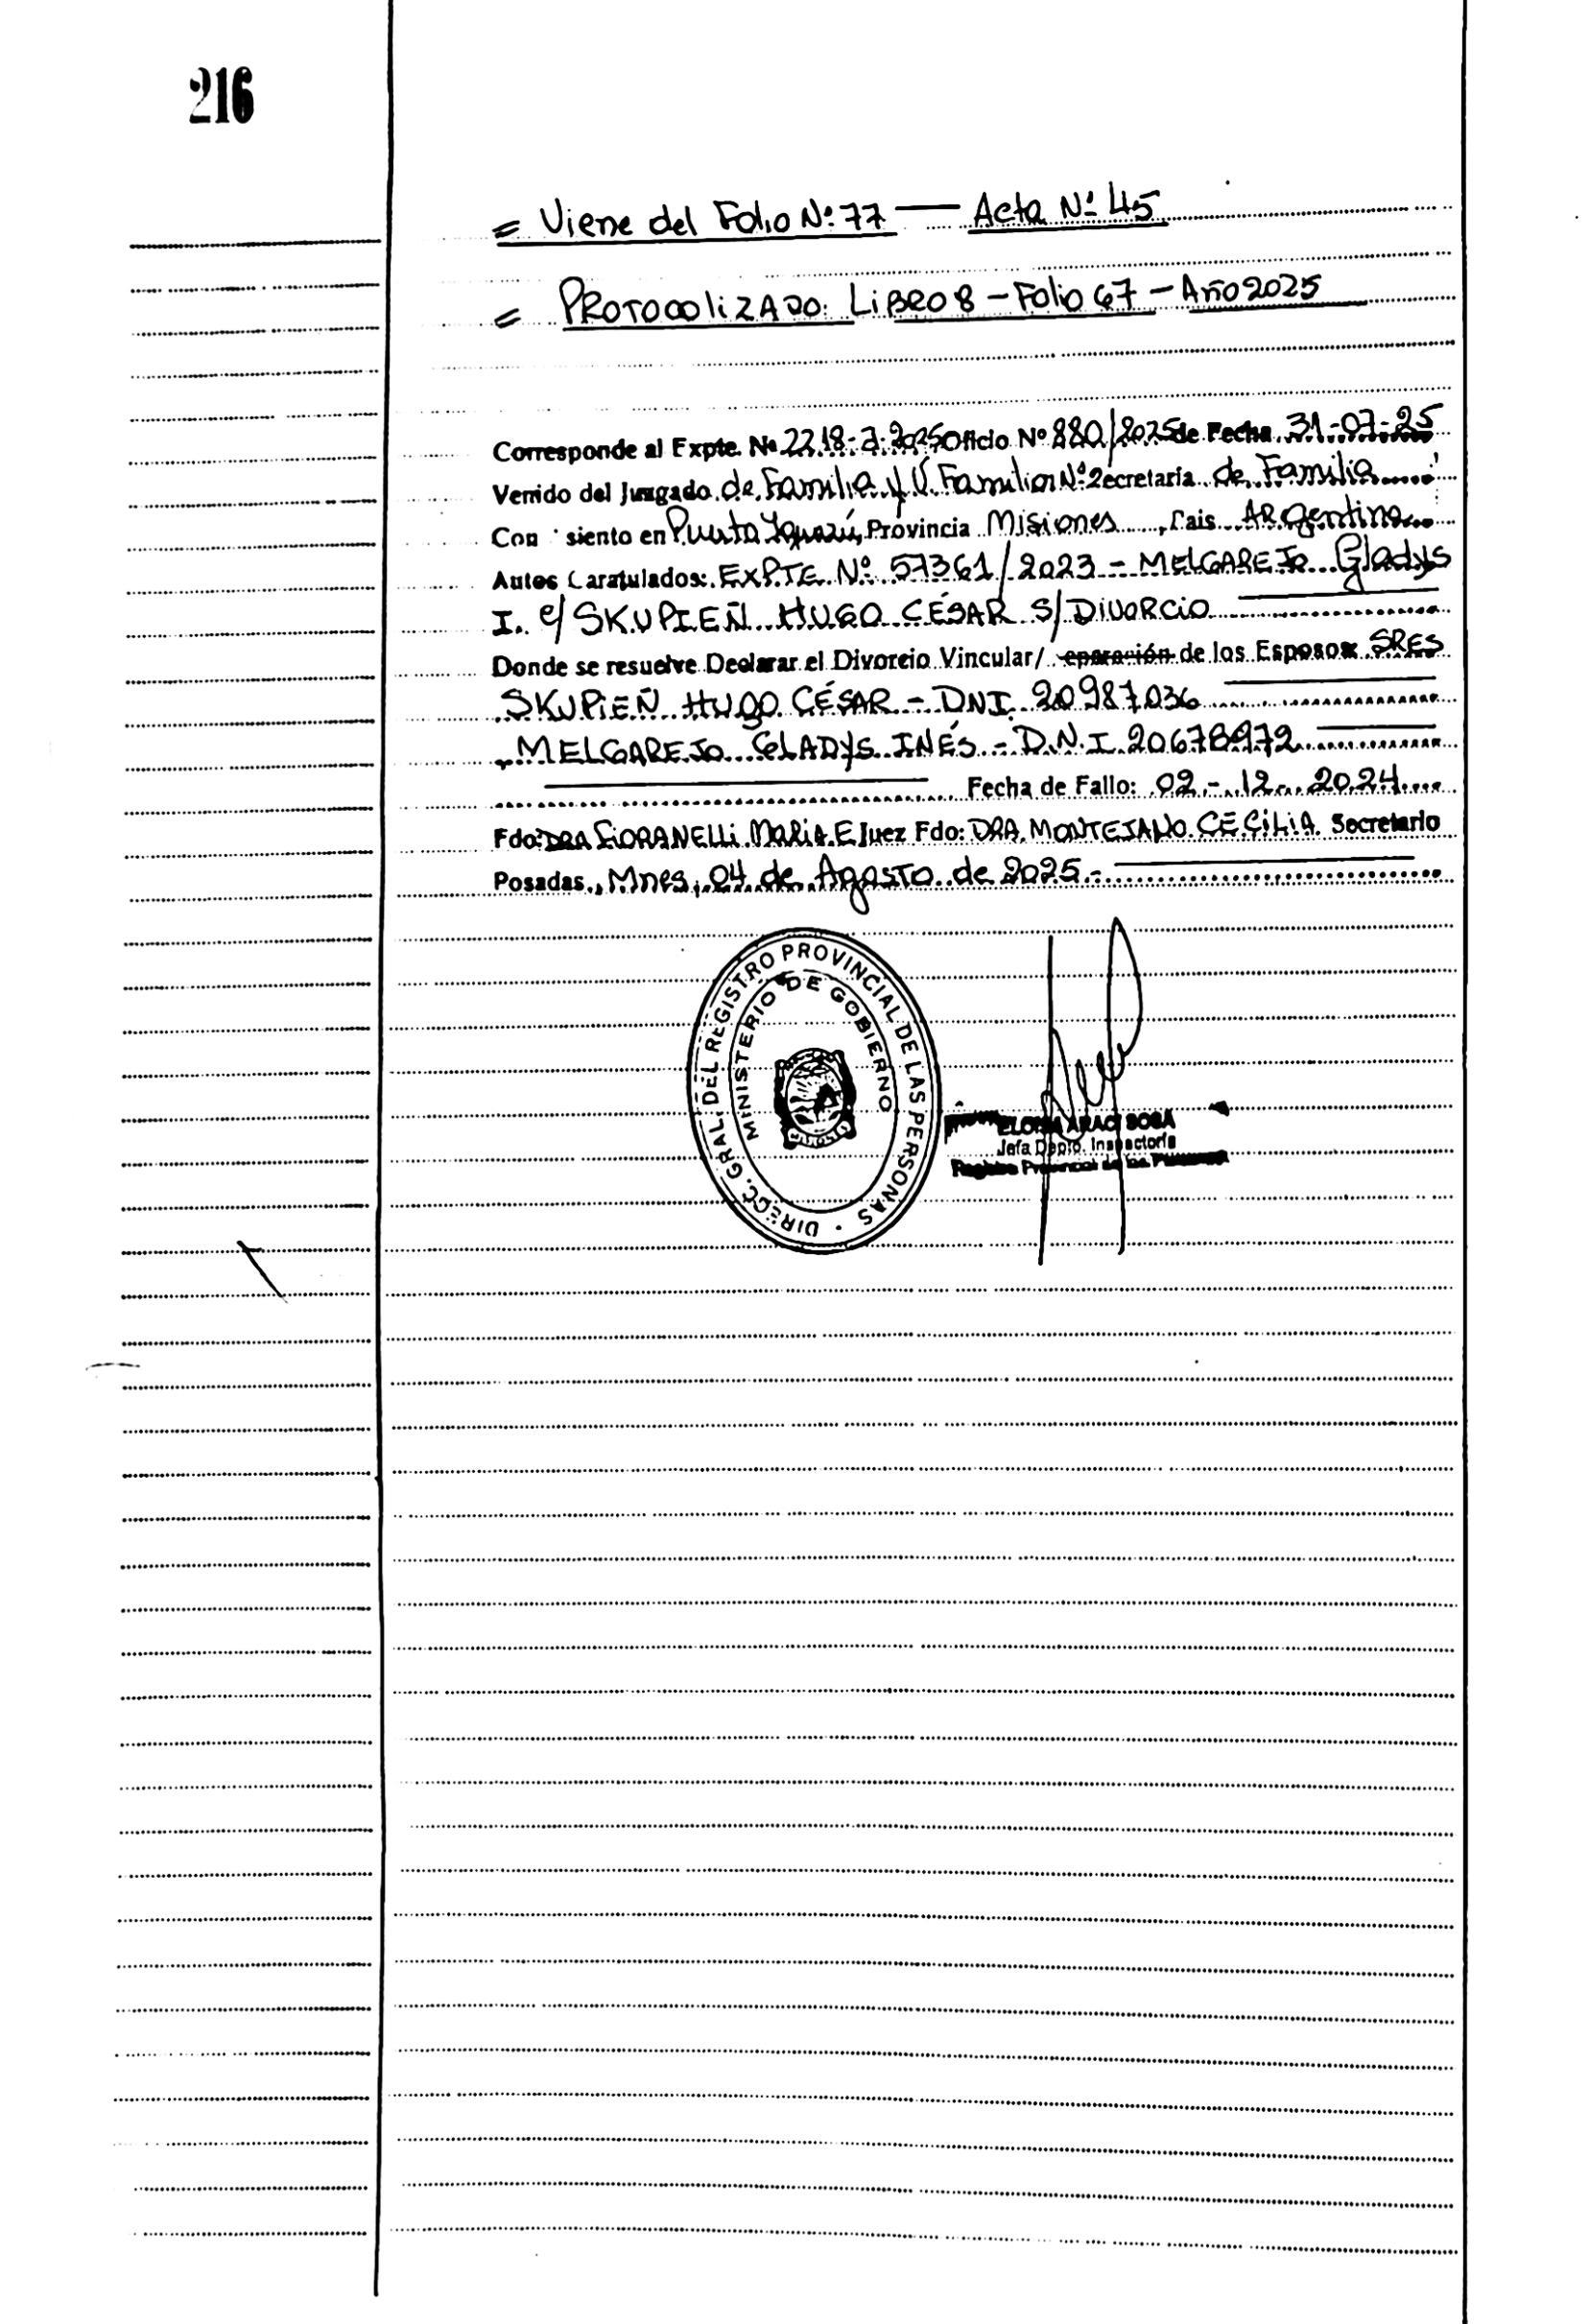 216
= Viene del Folio Nº 77 — Acta Nº 45
= PROTOCOLIZADO: LIBRO 8 - Folio 67 - Año 2025
Corresponde al Expte. Nº 2218-J-2025 Oficio Nº 880/2025 de Fecha 31-07-25
Venido del Juzgado de Familia y V. Familiar Nº 2 ecretaría de Familia
Con siento en Puerto Iguazú, Provincia Misiones, Pais ARgentina
Autos Caratulados: EXPTE Nº 57361/2023 - MELGAREJO Gladys
I. c/ SKUPIEÑ HUGO CÉSAR S/ DIVORCIO
Donde se resuelve Declarar el Divorcio Vincular/ eparación de los Esposos SRES
SKUPIEÑ HUGO CÉSAR - DNI. 20987036
MELGAREJO GLADYS INÉS - D.N.I. 20678972
Fecha de Fallo: 02-12-2024
Fdo: DRA FIORANELLI MARIA E Juez Fdo: DRA MONTEJANO CECILIA Secretario
Posadas, Mnes, 04 de Agosto de 2025.-
DIRECC. GRAL. DEL REGISTRO PROVINCIAL DE LAS PERSONAS
MINISTERIO DE GOBIERNO
ARACI SOSA
Jefa Depto. Inspectoría
Registro Provincial de las Personas